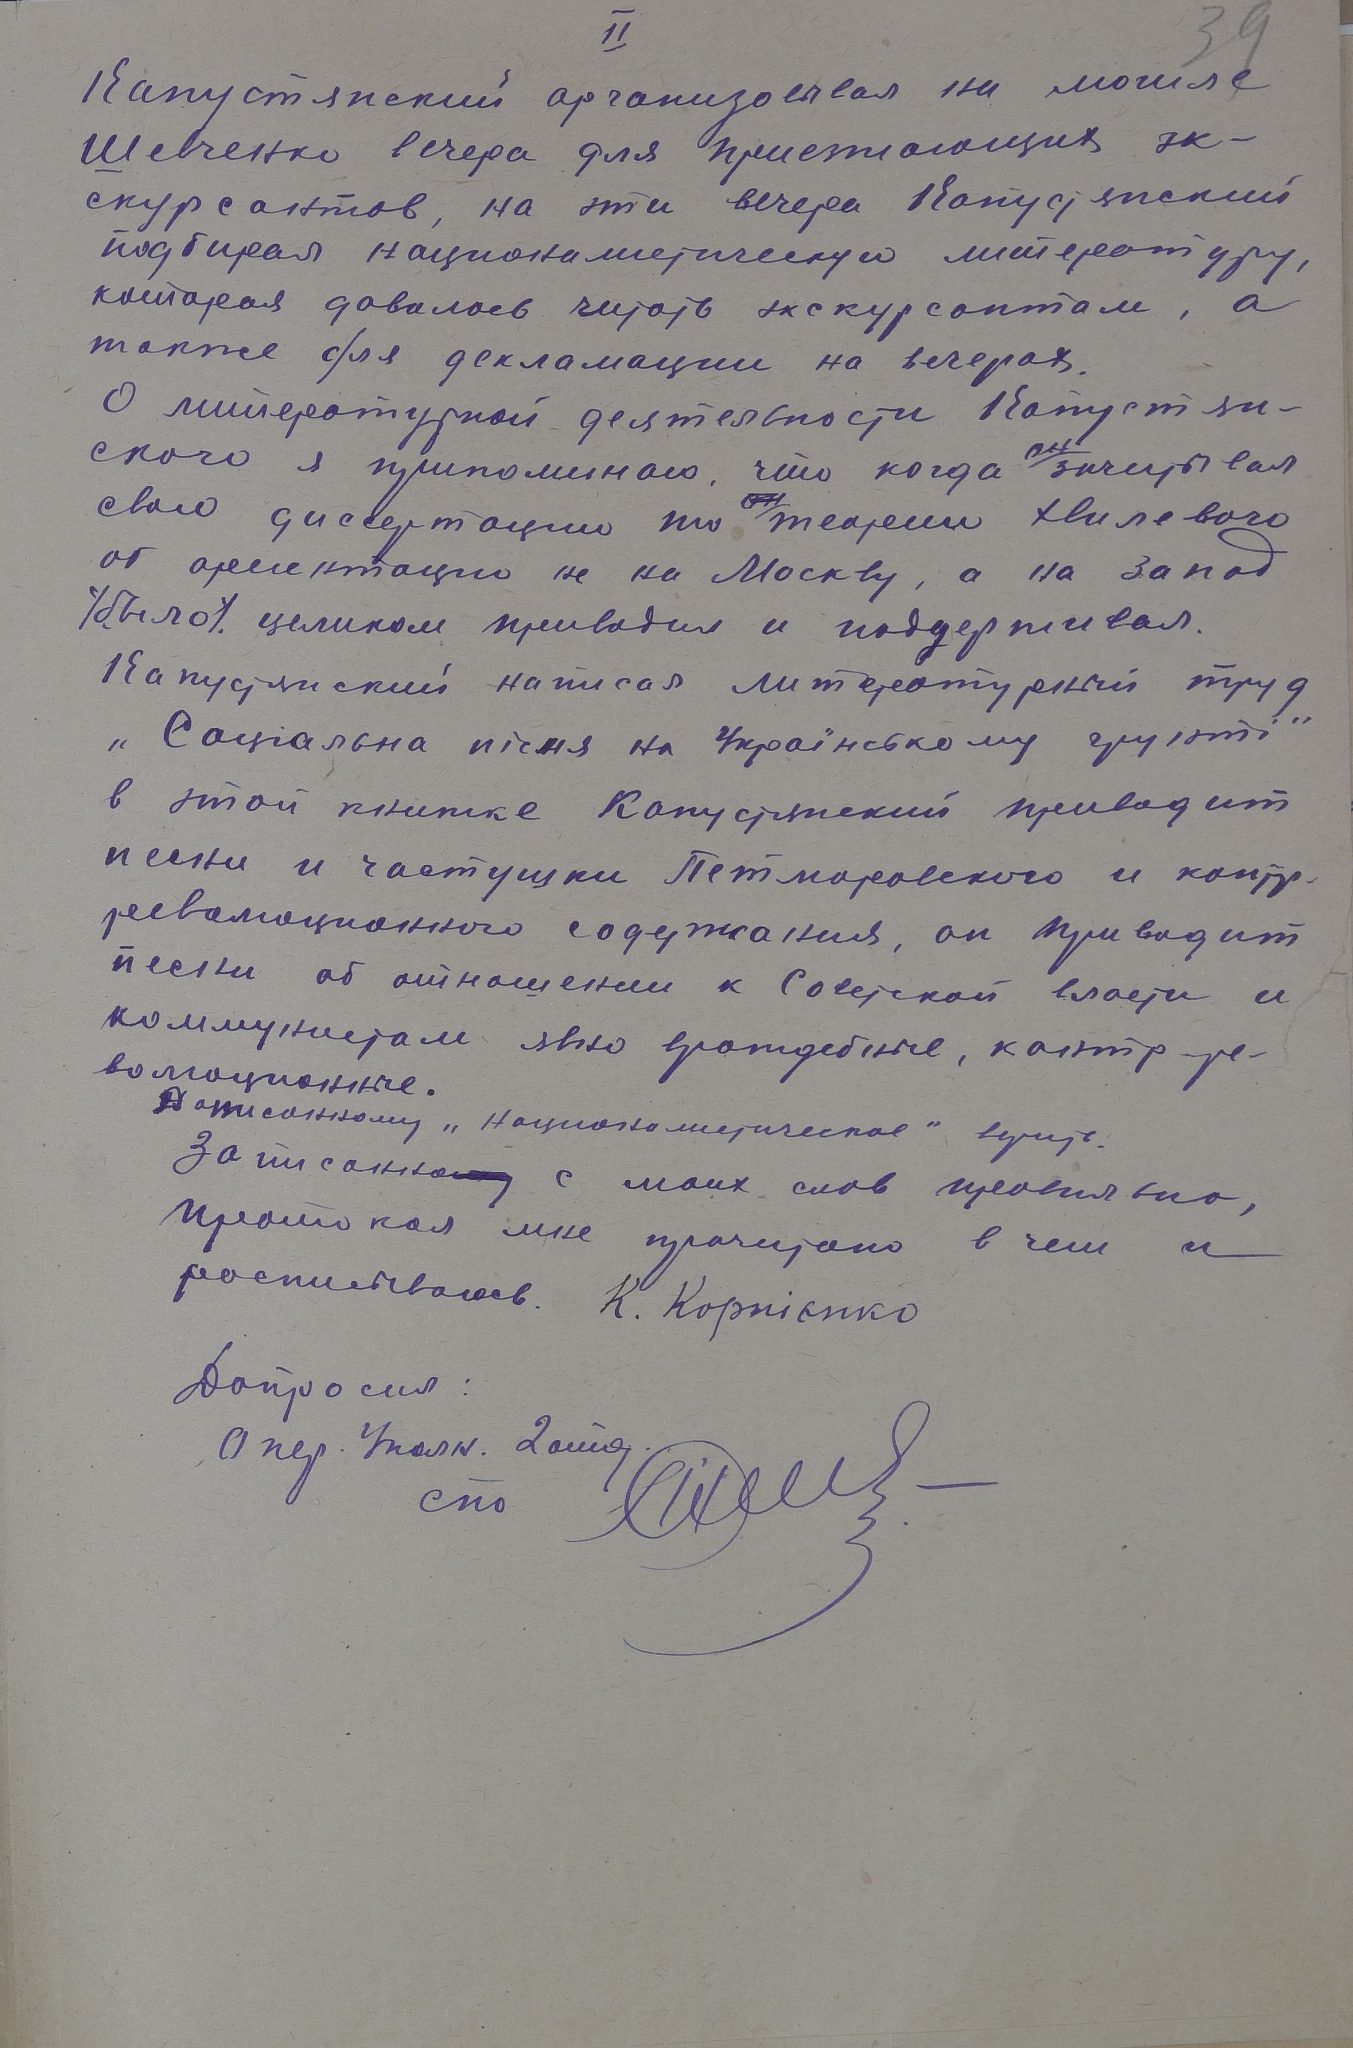 II
39
Капустянский организовывал на могиле
Шевченко вечера для приезжающих эк-
скурсантов, на эти вечера Капустянский
подбирал националистическую литературу,
которая давалась читать экскурсантам, а
также для декламации на вечерах.
О литературной деятельности Капустян-
ского я припоминаю, что когда он зачитывал
свою диссертацию то он теорию Хвилевого
об ориентации не на Москву, а на Запад
было целиком приводил и поддерживал.
Капустянский написал литературный труд
„Соціальна пісня на Українському грунті"
в этой книжке Капустянский приводит
песни и частушки Петлюровского и контр-
революционного содержания, он приводит
песни об отношении к Советской власти и
коммунистам явно враждебные, контр-ре-
волюционные.
Дописанному „националистическое" верить.
Записанно с моих слов правильно,
протокол мне прочитано в чем и
росписываюсь. К. Корнієнко
Допросил:
Опер. Уполн. 2 отд.
СПО